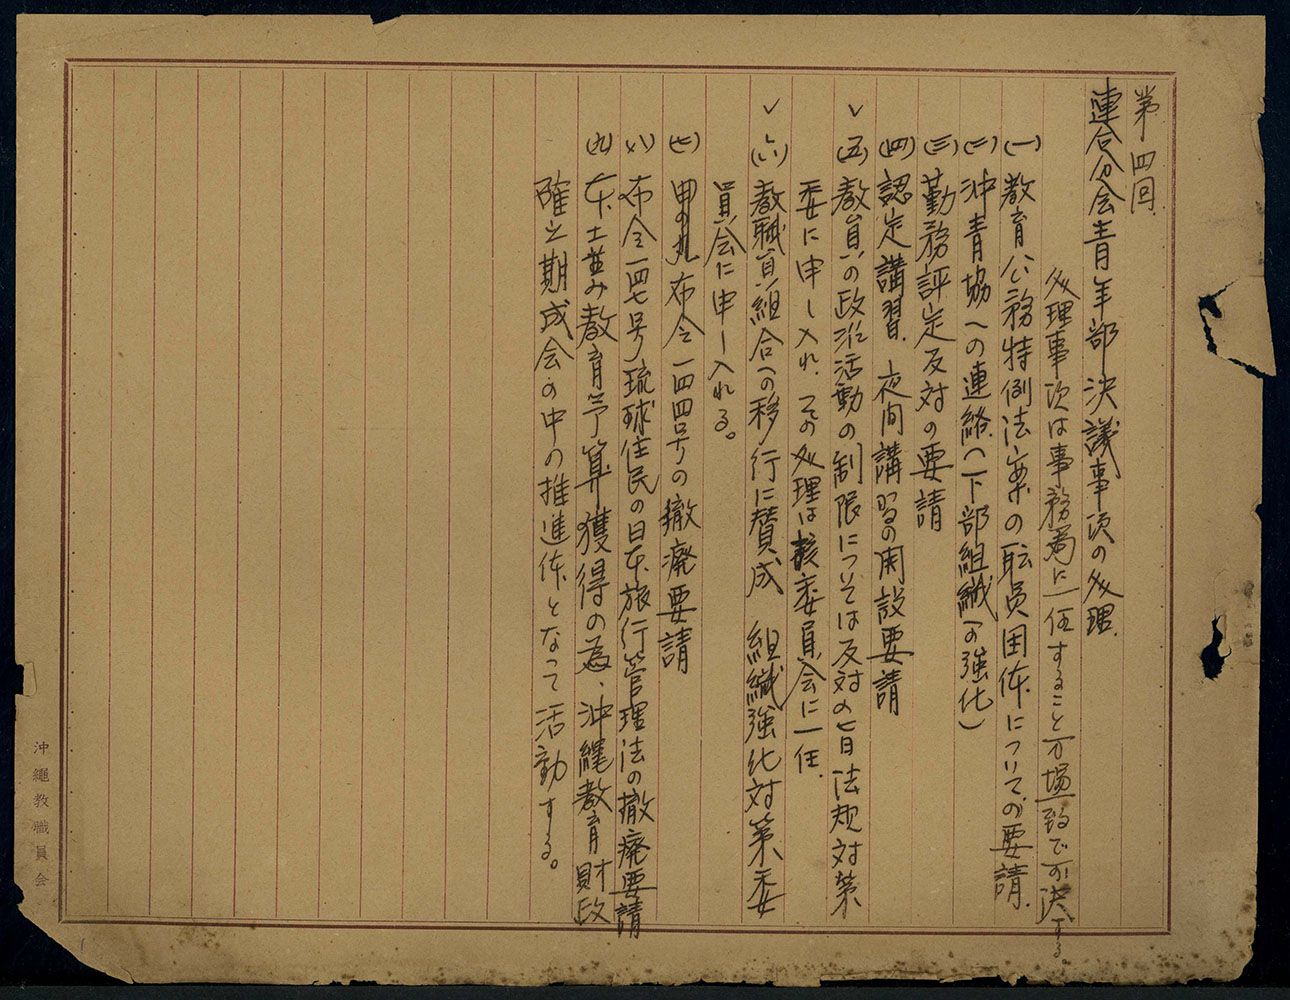 第四回
連合分会青年部決議事項の処理.
処理事項は事務局に一任すること万場一致で可決する。
(一) 教育公務特例法案の職員団体についての要請.
(二) 沖青協への連絡(下部組織の強化)
(三) 勤務評定反対の要請
(四) 認定講習、夜間講習の開設要請
✓ (五) 教員の政治活動の制限については反対の旨法規対策
委に申し入れ、その処理は該委員会に一任.
✓ (六) 教職員組合への移行に賛成 組織強化対策委
員会に申し入れる。
(七) 布令一四四号の撤廃要請
(八) 布令一四七号琉球住民の日本旅行管理法の撤廃要請
(九) 本土並み教育予算獲得の為、沖縄教育財政
確立期成会の中の推進体となって活動する。
沖繩教職員会